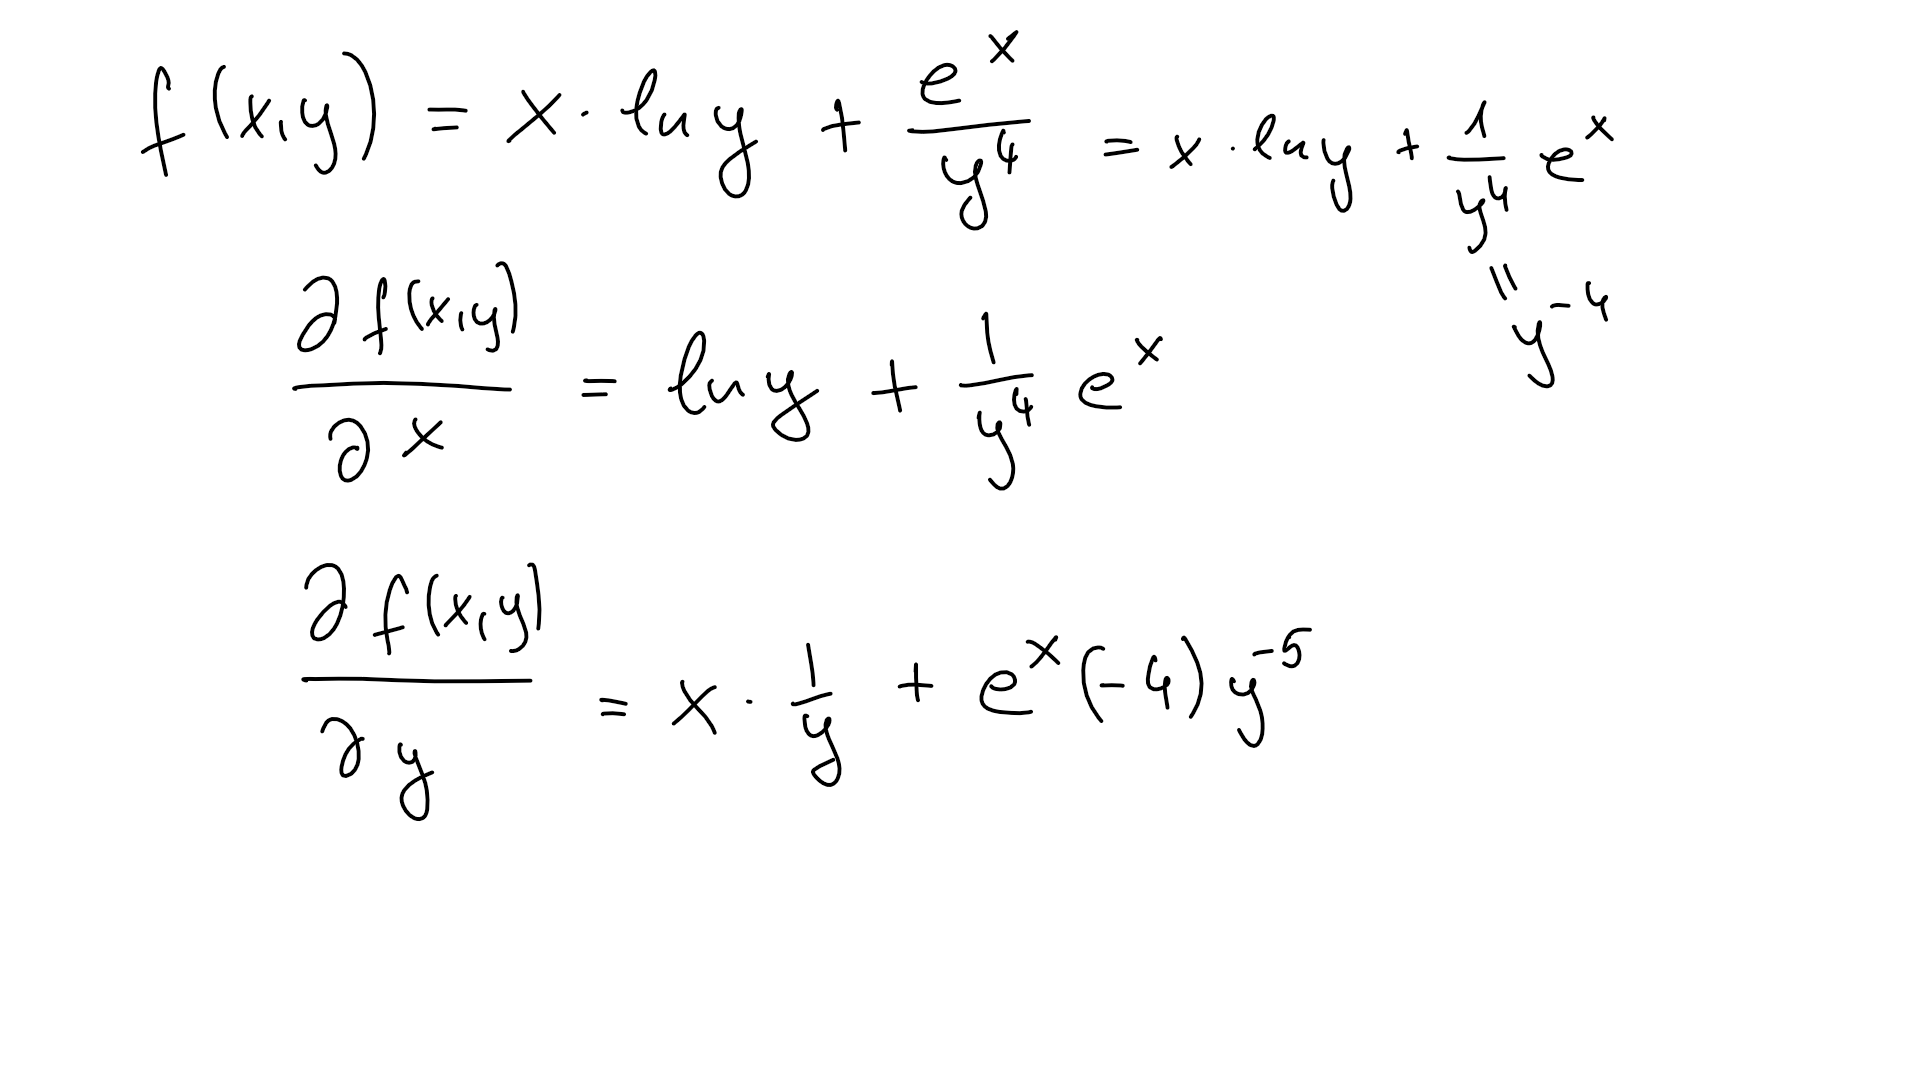 f(x,y) = x · ln y + e^x / y^4 = x · ln y + 1/y^4 e^x
= y^-4
∂f(x,y)/∂x = ln y + 1/y^4 e^x
∂f(x,y)/∂y = x · 1/y + e^x (-4) y^-5